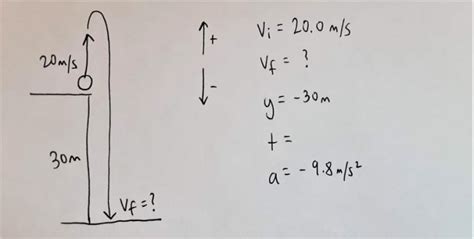 20m/s
30m
Vf = ?
+
-
Vi = 20.0 m/s
Vf = ?
y = -30m
t =
a = -9.8 m/s²